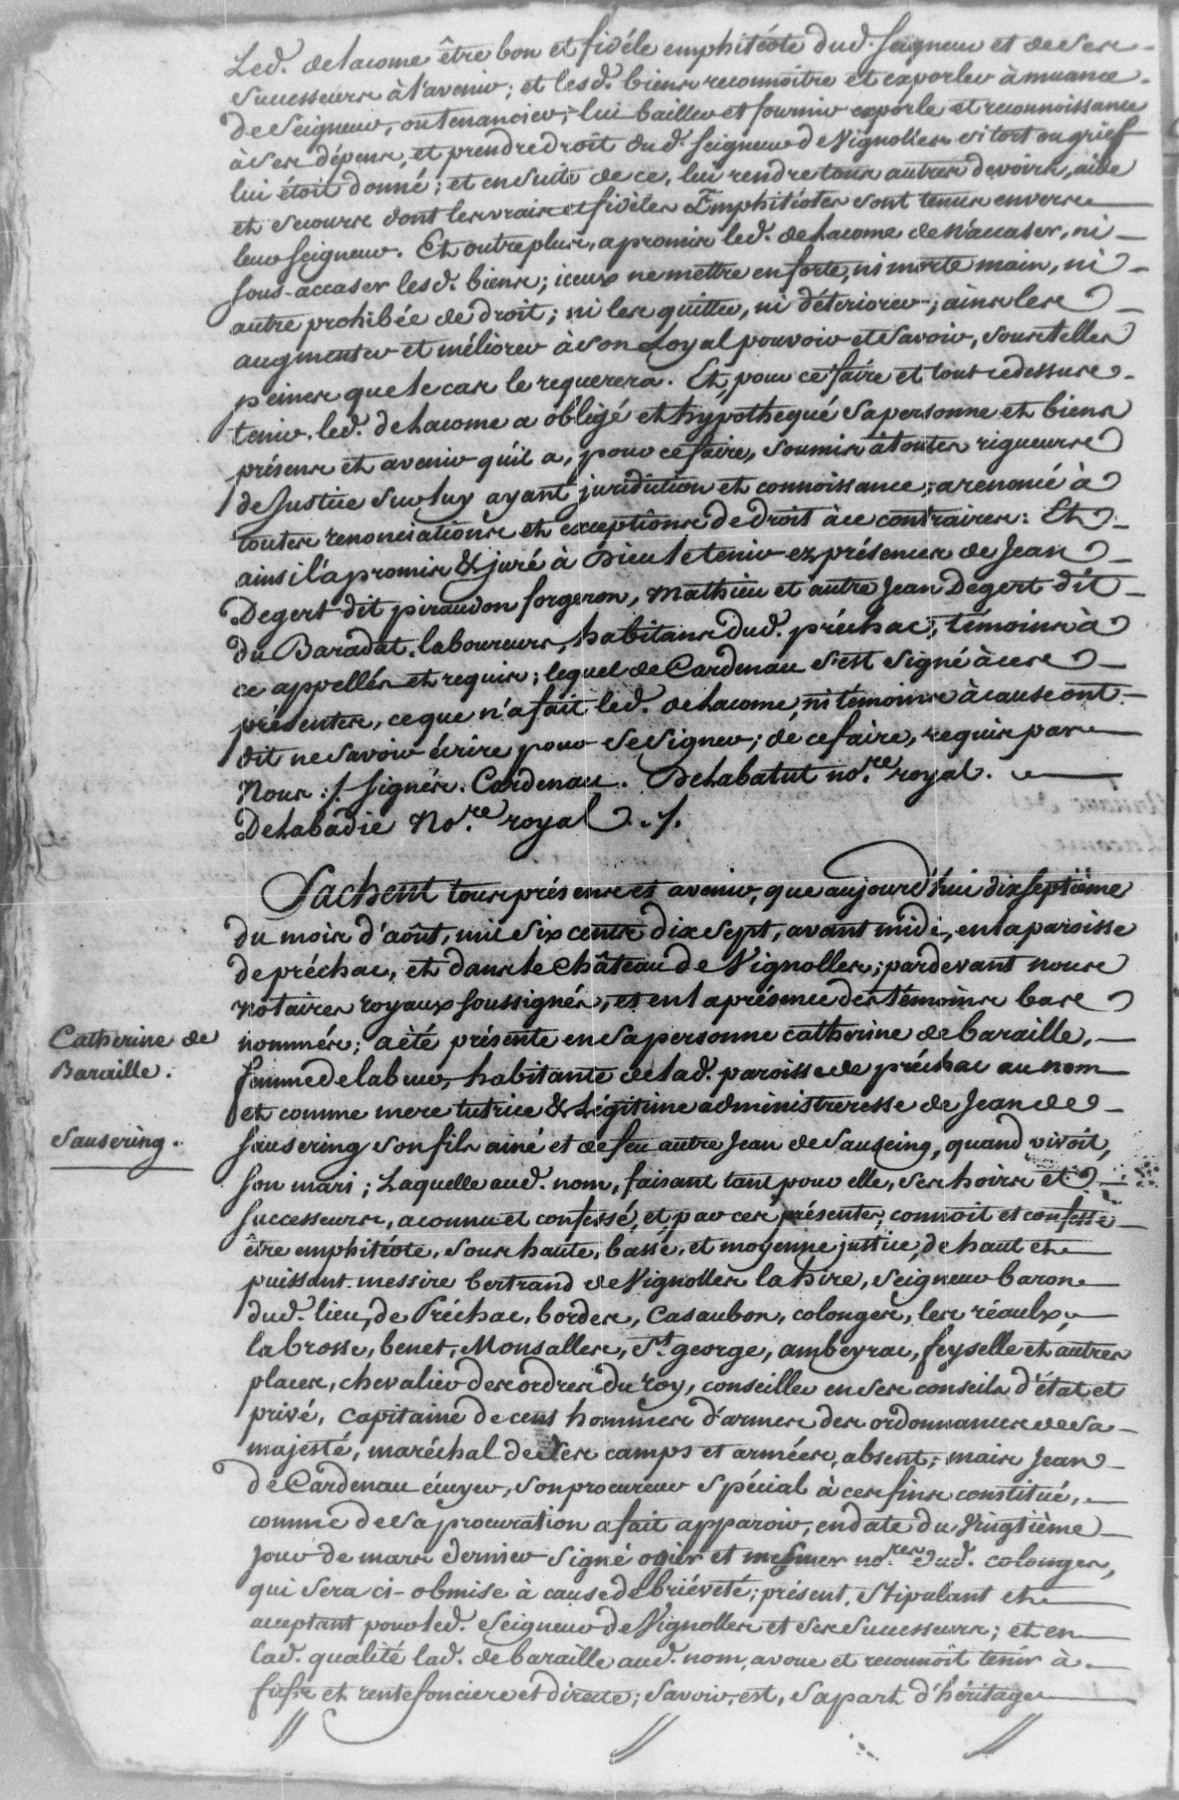 Led. delacome être bon et fidéle emphitéote dud. seigneur et de ses
successeurs à l'avenir; et lesd. biens reconnoitre et exporler à muance
de Seigneur, ou tenancier; lui bailler et fournir exporle et reconnoissance
à ses dépens, et prendre droit dud. seigneur de Vignolles si tort ou grief
lui étoit donné; et ensuite de ce, lui rendre tous autres devoirs, aide
et secours dont les vrais et fidéles Emphitéotes sont tenus envers
leur seigneur. Et outre plus, a promis led. delacome de n'accaser, ni
sous-accaser lesd. biens; iceux ne mettre en forte, ni morte main, ni
autre prohibée de droit; ni les quitter, ni déteriorer; ains les
augmenter et méliorer à son Loyal pouvoir et savoir, sous telles
peines que le cas le requerera. Et, pour ce faire et tout ce dessus
tenir, led. delacome a obligé et hypothequé sa personne et biens
présens et avenir qu'il a, pour ce faire, soumis à toutes rigueurs
de Justice sur luy ayant juridiction et connoissance; a renoncé à
toutes renonciations et exceptions de droit à ce contraires: Et
ainsi l'a promis & juré à Dieu le tenir ez présences de Jean
Degert dit piraudon forgeron, Mathieu et autre Jean Degert dit
du Baradat, laboureurs, habitans dud. préchac, témoins à
ce appellés et requis; lequel de Cardenau s'est signé à ces
présentes, ce que n'a fait led. delacome, ni témoins à cause ont
dit ne savoir écrire pour se signer; de ce faire, requis par
Nous :/. signés. Cardenau. Delabatut no.re royal.
Delabadie No.re royal ./.
Sachent tous présens et avenir, que aujourd'hui dix septième
du mois d'août, mil six cents dix sept, avant midi, en la paroisse
de préchac, et dans le Château de Vignolles; pardevant nous
Notaires royaux soussignés, et en la présence des témoins bas
Catherine de
Baraille.
nommés; a été présente en sa personne catherine de baraille,
femme de labeur, habitante de lad. paroisse de préchac au nom
et comme mere tutrice & Légitime administreresse de Jean de
Sausering.
Sausering son fils ainé et de feu autre Jean de Sauseing, quand vivoit,
son mari; Laquelle aud. nom, faisant tant pour elle, ses hoirs et
successeurs, a connu et confessé, et par ces présentes, connoit et confesse
être emphitéote, sous haute, basse, et moyenne justice, de haut et
puissant messire bertrand de Vignolles la hire, seigneur baron
dud. lieu, de Préchac, bordes, Casaubon, colonges, les réaulx,
labrosse, benet, Monsalles, St. george, ambeyrac, feyselle et autres
places, chevalier des ordres du roy, conseiller en ses conseils d'état et
privé, Capitaine de cens hommes d'armes des ordonnances de sa
majesté, maréchal de ses camps et armées, absent; mais Jean
de Cardenau écuyer, son procureur spécial à ces fins constitué,
comme de sa procuration a fait apparoir, en date du Vingtième
jour de mars dernier signé ogier et mesmer no.res dud. colonges,
qui sera ci-obmise à cause de briéveté; présent, stipulant et
acceptant pour led. seigneur de Vignolles et ses successeurs; et en
lad. qualité lad. de baraille aud. nom, avoue et reconnoît tenir à
fief et rente fonciere et directe; savoir, est, sa part d'héritage